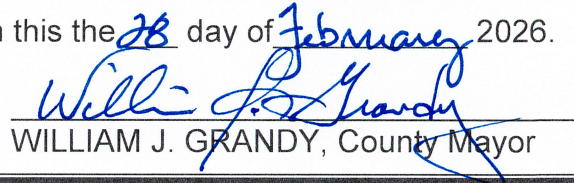 this the 28 day of February 2026.
William J. Grandy
WILLIAM J. GRANDY, County Mayor